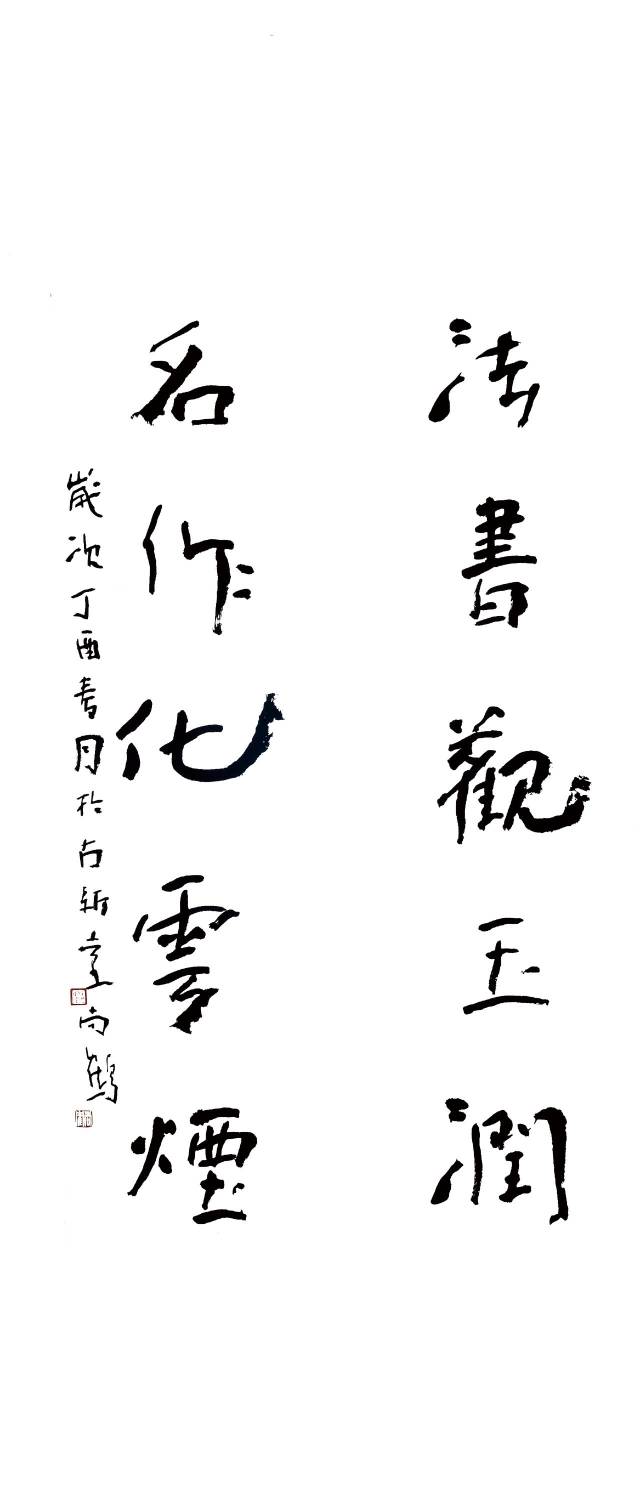 法書觀玉潤
名作化雲煙
歲次丁酉春月於古新堂尚鶴